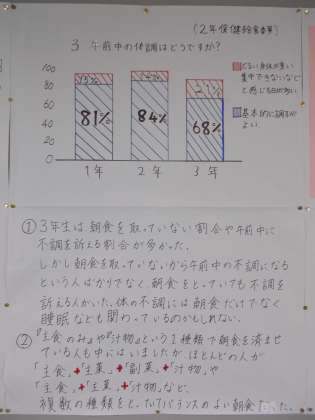 (2年保健給食委員)
3 午前中の体調はどうですか?
100
80
60
40
20
0
15%
81%
84%
21%
68%
1年
2年
3年
だるい身体が重い
集中できないなど
と感じる日が多い
基本的に調子が
よい
①3年生は、朝食を取っていない割合や午前中に
不調を訴える割合が多かった。
しかし朝食を取っていないから午前中の不調になる
という人ばかりでなく、朝食をとっていても不調を
訴える人がいた。体の不調には朝食だけでなく
睡眠なども関わっているのかもしれない。
②『主食のみ』や『汁物』という1種類で朝食を済ませ
ている人も中にはいましたがほとんどの人が
「主食」+「主菜」+「副菜」+「汁物」や
「主食」+「主菜」+「汁物」など、
複数の種類をとっていてバランスのよい朝食